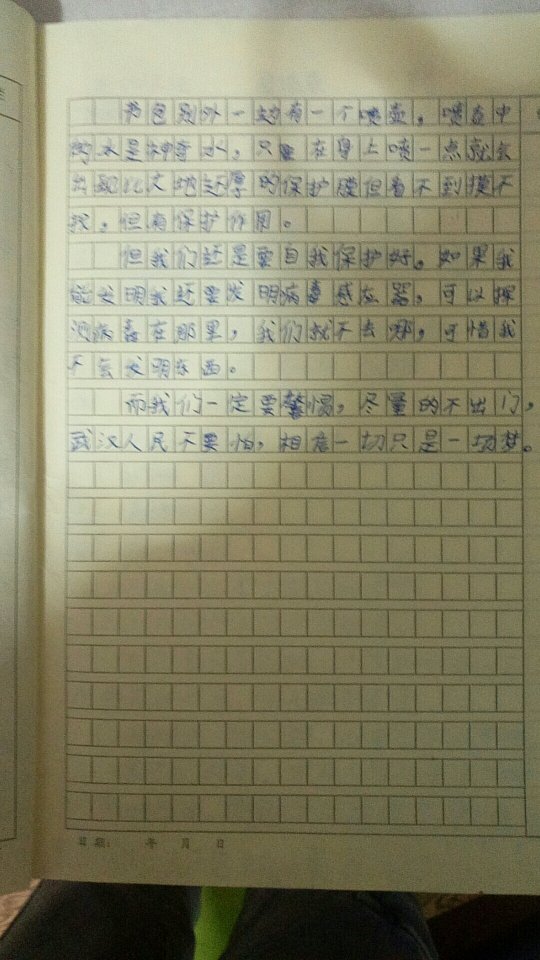 书包别外一边有一个喷壶，喷壶中
的水是神奇水，只要在身上喷一点就会
出现比大地还厚的保护膜但看不到摸不
找，但有保护作用。
但我们还是要自我保护好。如果我
能发明我还要发明病毒感应器，可以探
测病毒在那里，我们就不去哪，可惜我
不会发明东西。
而我们一定要警惕，尽量的不出门，
武汉人民不要怕，相信一切只是一场梦。
日期： 年 月 日